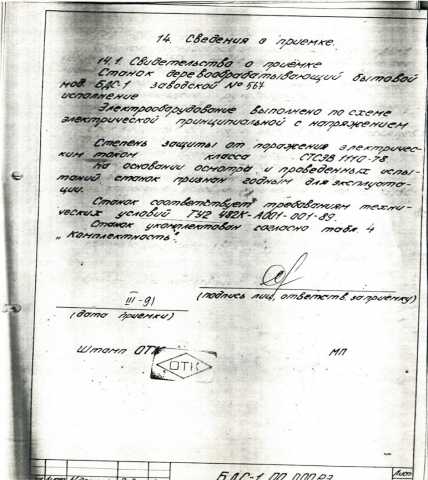 14. Сведения о приемке.
14.1. Свидетельство о приёмке
Станок деревообрабатывающий бытовой
мод. БДС-1 заводской № 567
исполнение
Электрооборудование выполнено по схеме
электрической принципиальной с напряжением
Степень защиты от поражения электричес-
ким током класса СТСЭВ 1110-78.
На основании осмотра и проведенных испы-
таний станок признан годным для эксплуата-
ции.
Станок соответствует требованиям техни-
ческих условий ТУ2 482К-А001-001-89.
Станок укомплектован согласно табл. 4
„Комплектность".
III-91
(подпись лиц, ответств. за приемку)
(дата приемки)
Штамп ОТК
ОТК
МП
БДС-1.00.000РЭ
Лист